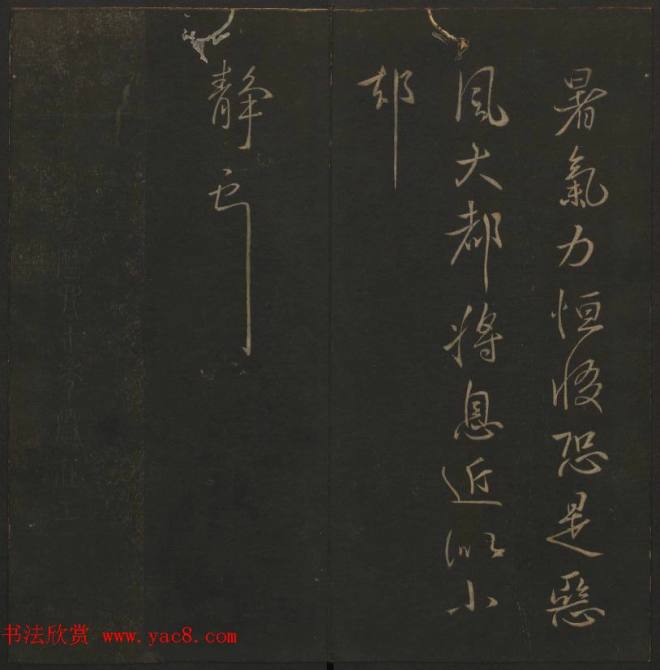 暑氣力恒惙恐是惡
風大都將息近似小
却
靜
书法欣赏 www.yac8.com